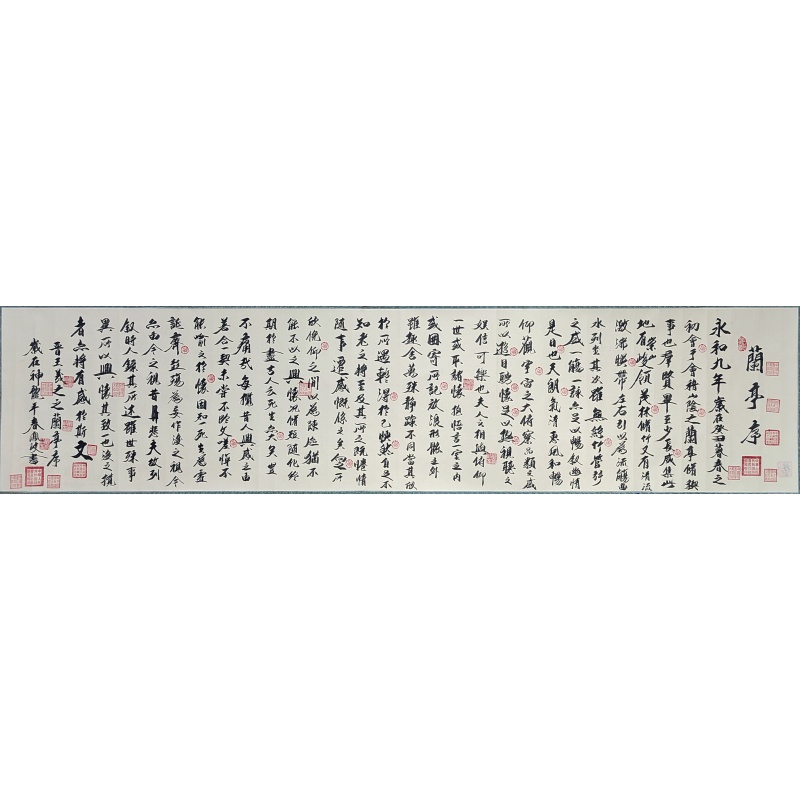 蘭亭序
永和九年歲在癸丑暮春之
初會于會稽山陰之蘭亭脩禊
事也群賢畢至少長咸集此
地有崇山峻領茂林脩竹又有清流
激湍暎帶左右引以為流觴曲
水列坐其次雖無絲竹管弦
之盛一觴一詠亦足以暢敘幽情
是日也天朗氣清惠風和暢
仰觀宇宙之大俯察品類之盛
所以遊目騁懷足以極視聽之
娛信可樂也夫人之相與俯仰
一世或取諸懷抱悟言一室之內
或因寄所託放浪形骸之外
雖趣舍萬殊靜躁不同當其欣
於所遇暫得於己怏然自足不
知老之將至及其所之既惓情
隨事遷感慨係之矣向之所
欣俛仰之間以為陳迹猶不
能不以之興懷況脩短隨化終
期於盡古人云死生亦大矣豈
不痛哉每攬昔人興感之由
若合一契未嘗不臨文嗟悼不
能喻之於懷固知一死生為虛
誕齊彭殤為妄作後之視今
亦由今之視昔悲夫故列
敘時人錄其所述雖世殊事
異所以興懷其致一也後之攬
者亦將有感於斯文
晉王羲之之蘭亭序
歲在神龍年春